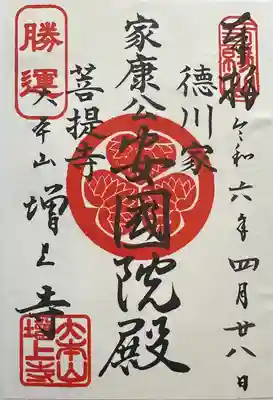 奉拝
令和六年四月廿八日
徳川家
家康公安國院殿
菩提寺
勝運
大本山増上寺
大本山
増上寺